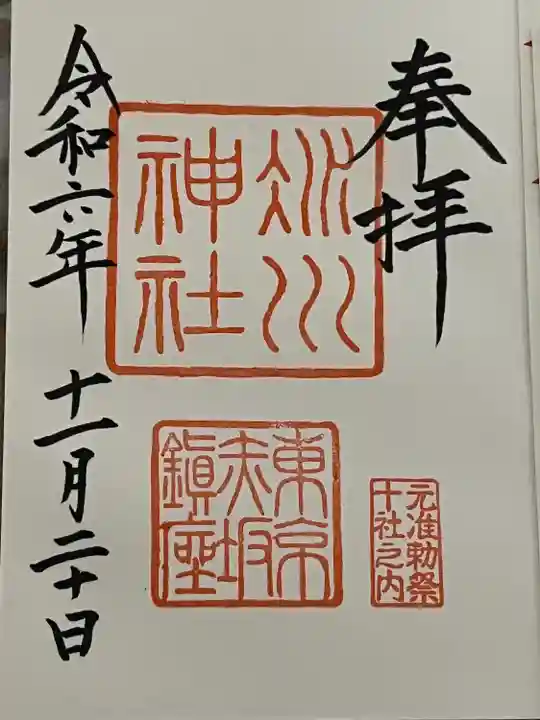 奉拝
氷川
神社
東京
赤坂
鎮座
元准勅祭
十社之内
令和六年 十一月二十日